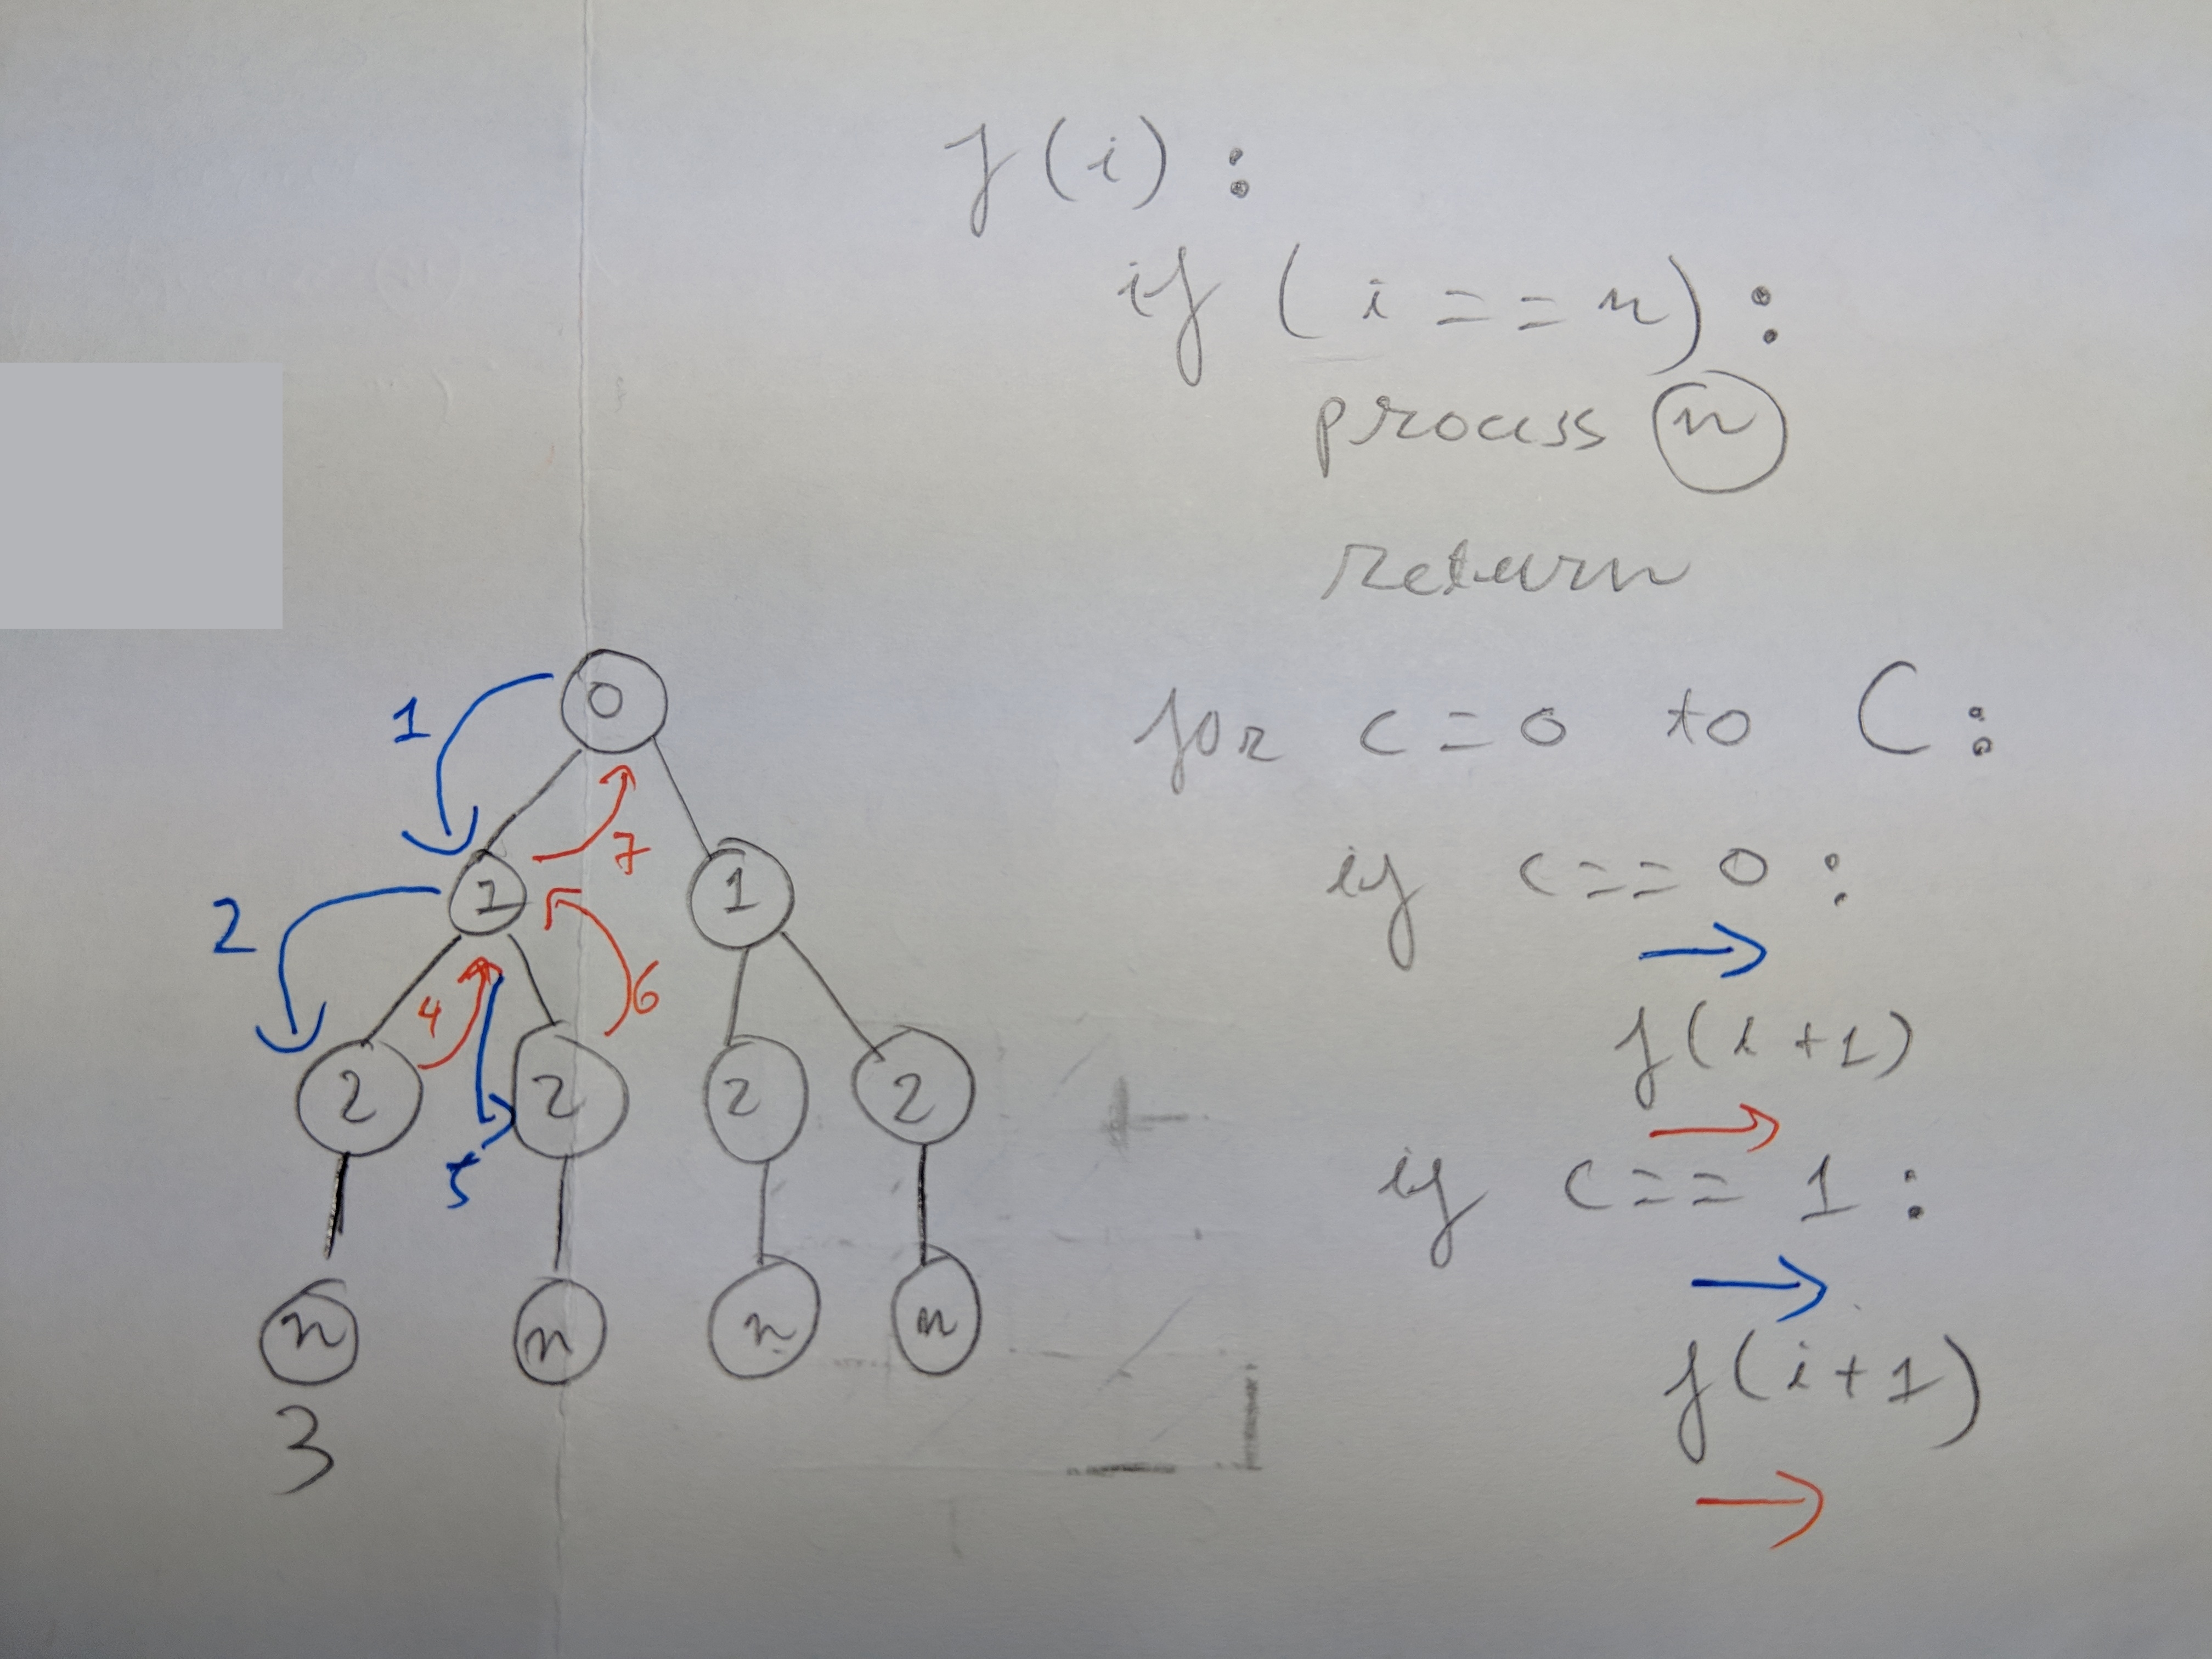 f(i):
if (i == n):
process n
return
for c = 0 to C:
if c == 0:
f(i+1)
if c == 1:
f(i+1)
0
1
7
1 1
2
4 6
2 2 2 2
5
n n n n
3